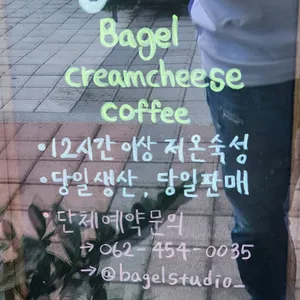 Bagel
creamcheese
coffee
• 12시간 이상 저온숙성
• 당일생산, 당일판매
• 단체예약문의
→ 062-454-0035
→ @bagelstudio_